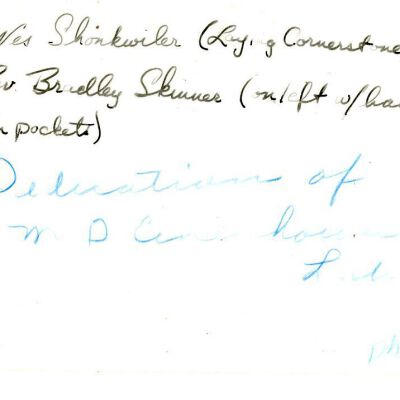 Wes Shonkwiler (Laying Cornerstone
Rev. Bradley Skinner (on left w/ha
in pockets)
Dedication of
M D Eisenhower
L
ph